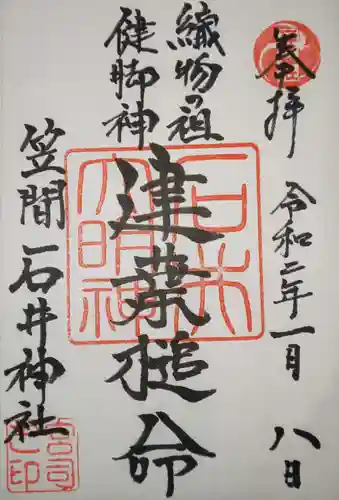 奉拝
令和二年一月八日
織物の祖
健脚神
建葉槌命
石井
大明神
笠間 石井神社
宮司
之印